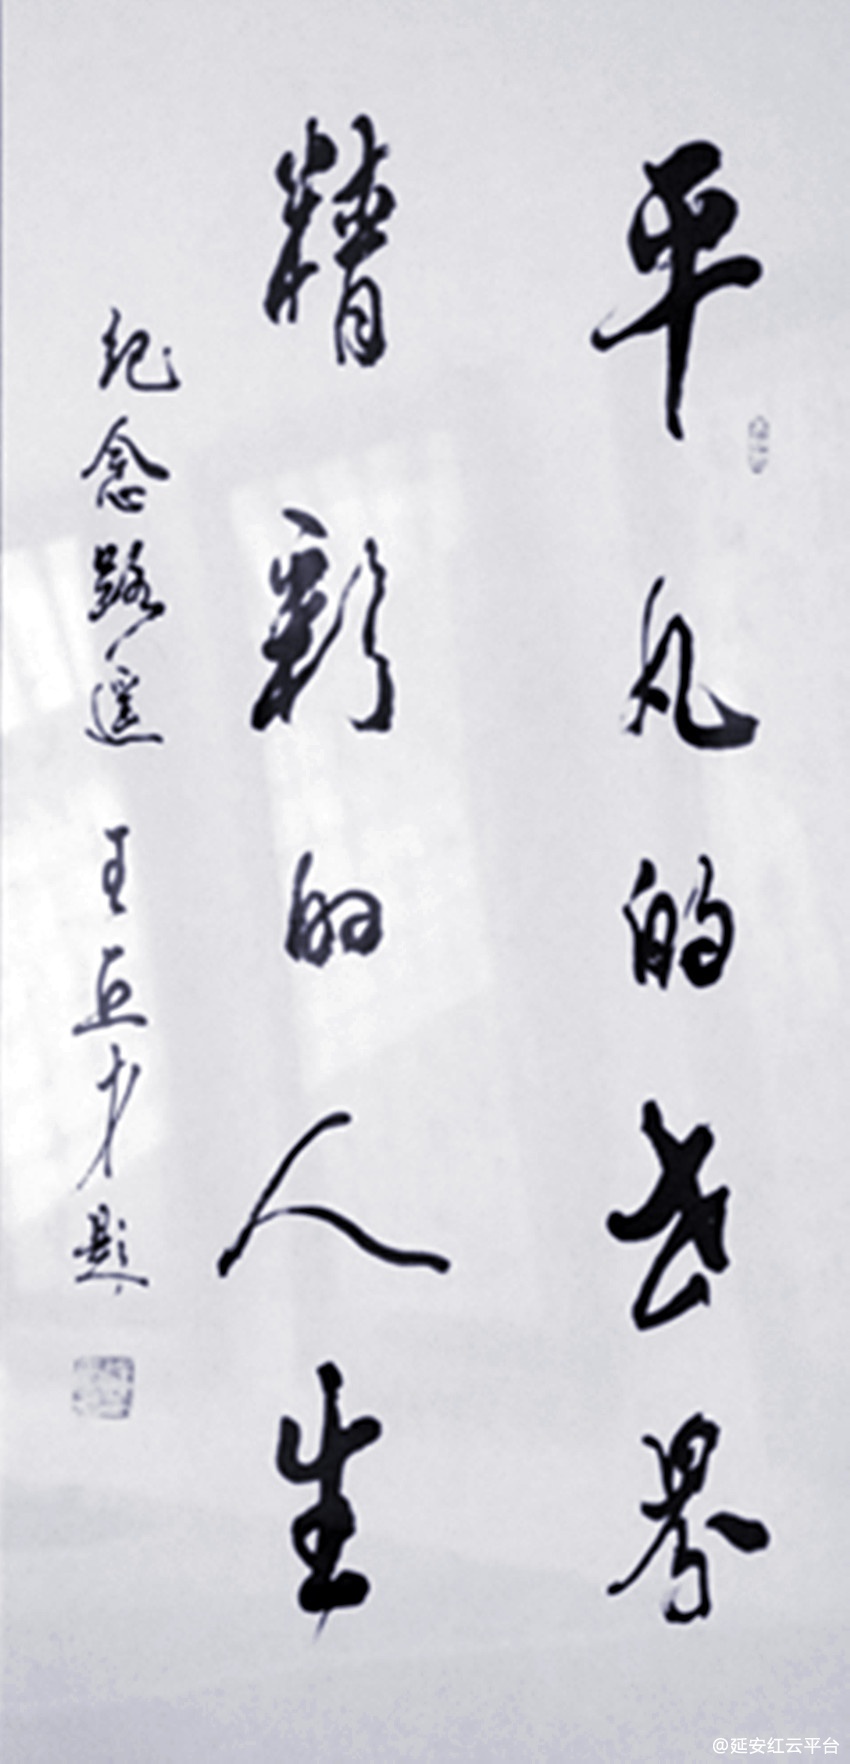 平凡的世界
精彩的人生
纪念路遥 王巨才题
@延安红云平台